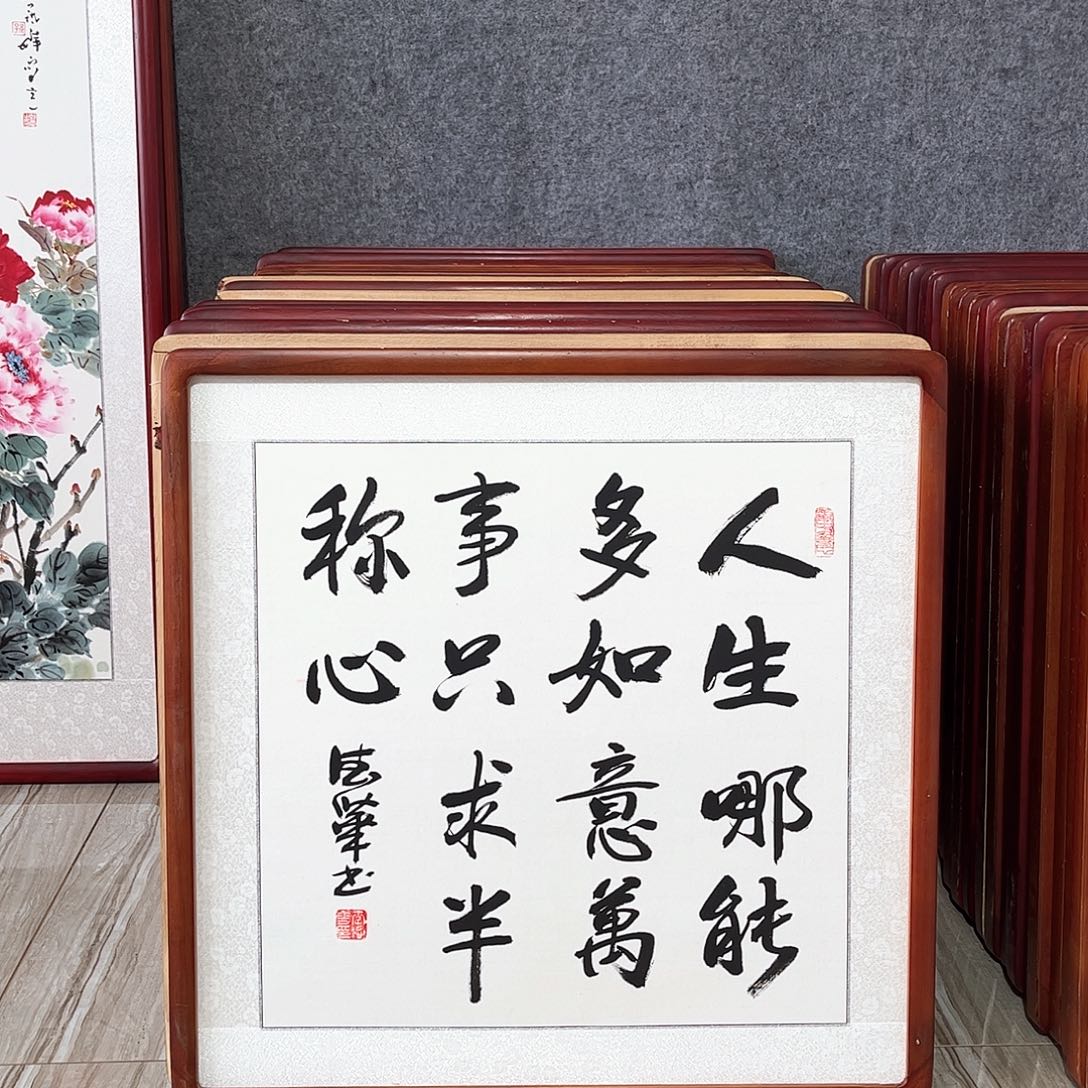 人生哪能
多如意萬
事只求半
称心